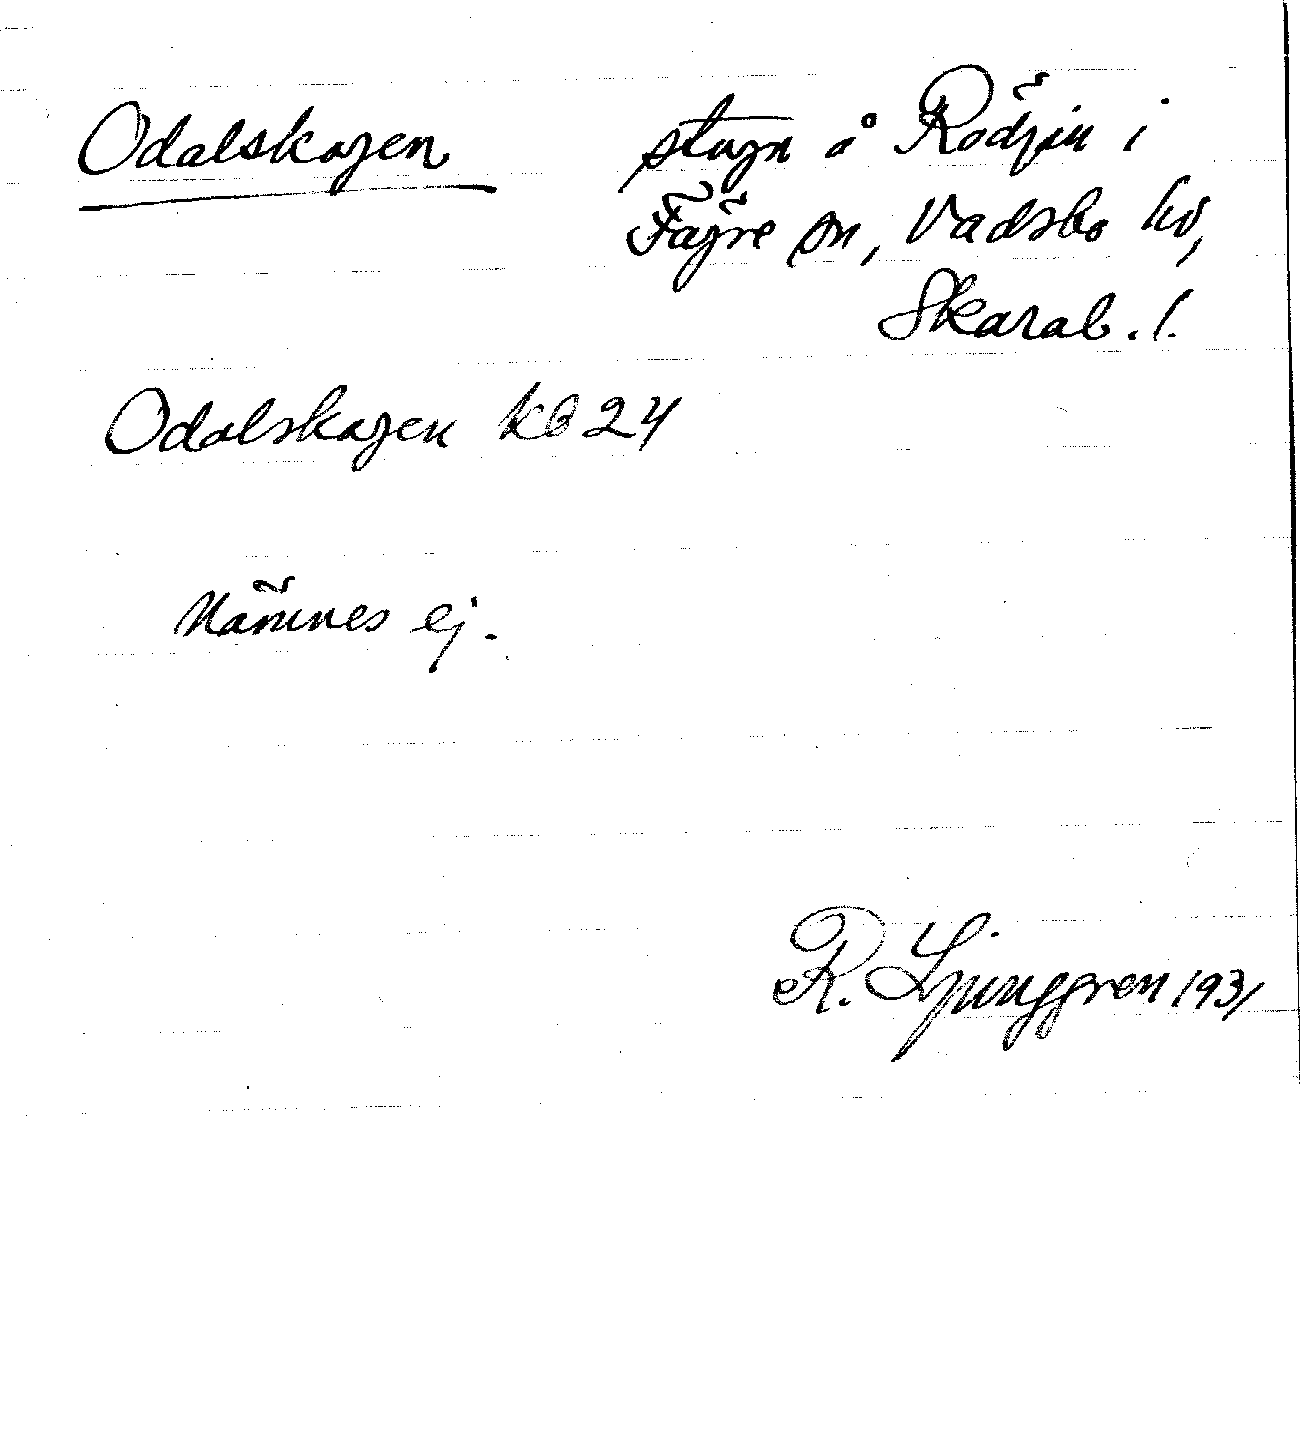 Odalskogen stugn å Rödjin i
Fägre sn, Vadsbo hd,
Skarab. l.
Odalskogen KB 24
Nämnes ej.
R. Ljunggren 1931